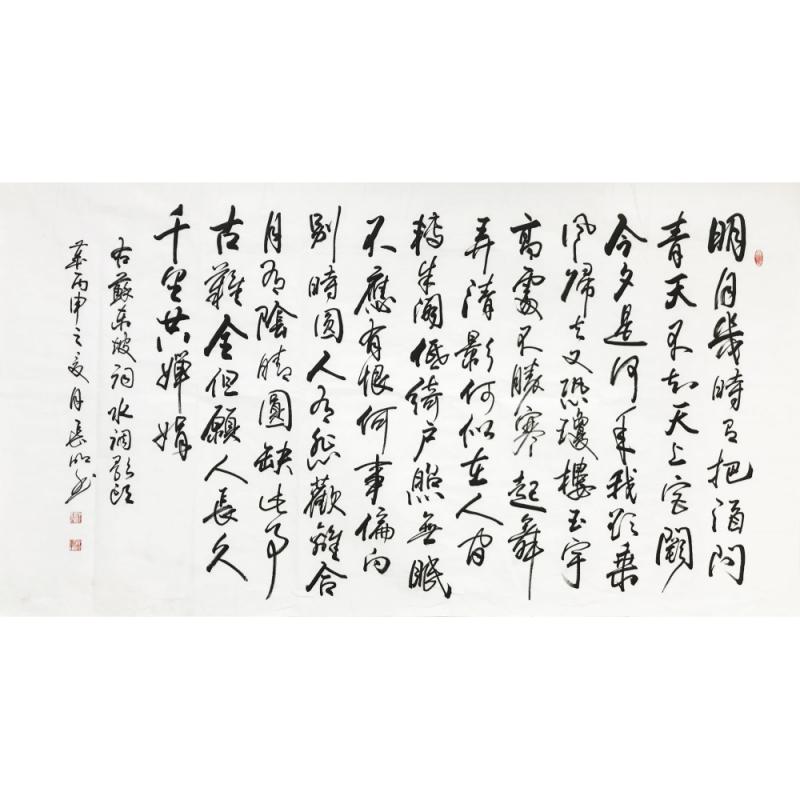 明月幾時有把酒問
青天不知天上宮闕
今夕是何年我欲乘
風歸去又恐瓊樓玉宇
高處不勝寒起舞
弄清影何似在人间
轉朱閣低綺户照無眠
不應有恨何事偏向
别時圓人有悲歡離合
月有陰晴圓缺此事
古難全但願人長久
千里共嬋娟
右蘇東坡詞水調歌頭
丙申之夏月